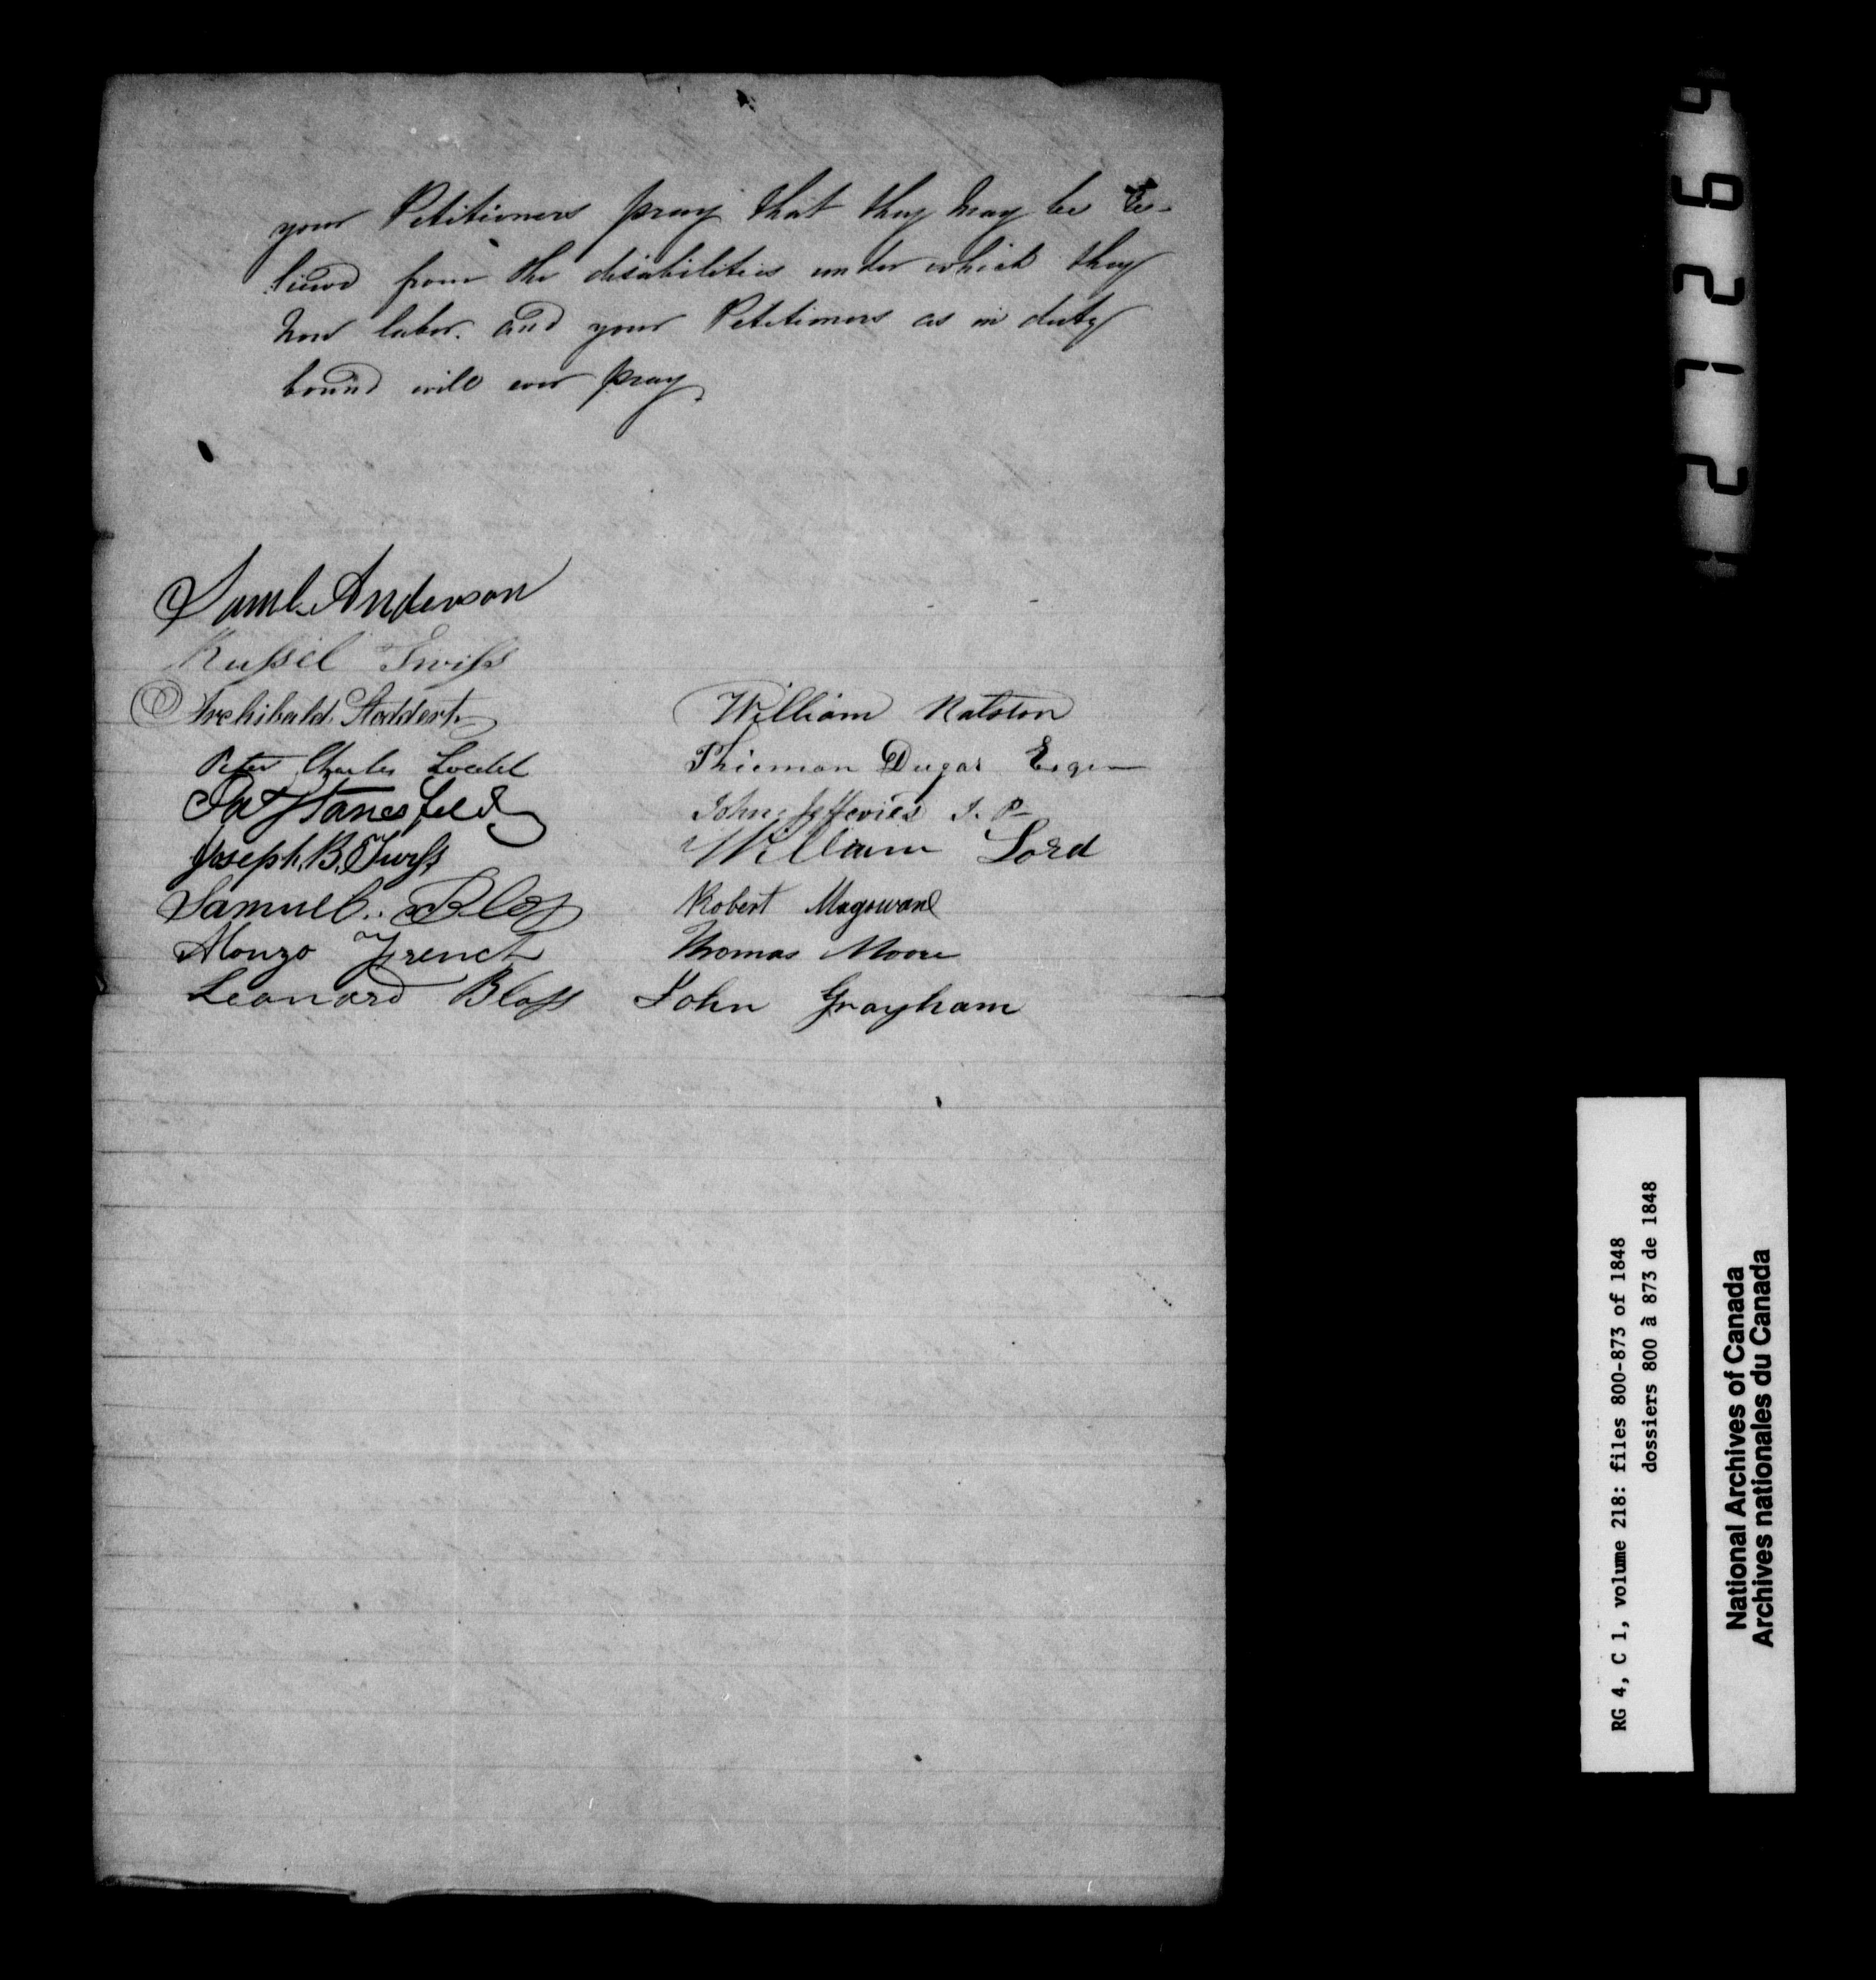 your Petitioners pray that they may be Re-
lieved from the disabilities under which they
now labor. and your Petitioners as in duty
bound will ever pray
Saml. Anderson
Russel Twiss
Archibald Stoddert
Peter Charles Loedel
Stanesfeld
Joseph. B. Twiss
Samuel. Bloss
Alonzo French
Leonard Bloss
William Ralston
Dugas Esqr
John Jefferies J. P
William Lord
Robert Magowan
Thomas Moore
John Grayham
RG 4, C 1, volume 218: files 800-873 of 1848
dossiers 800 à 873 de 1848
National Archives of Canada
Archives nationales du Canada